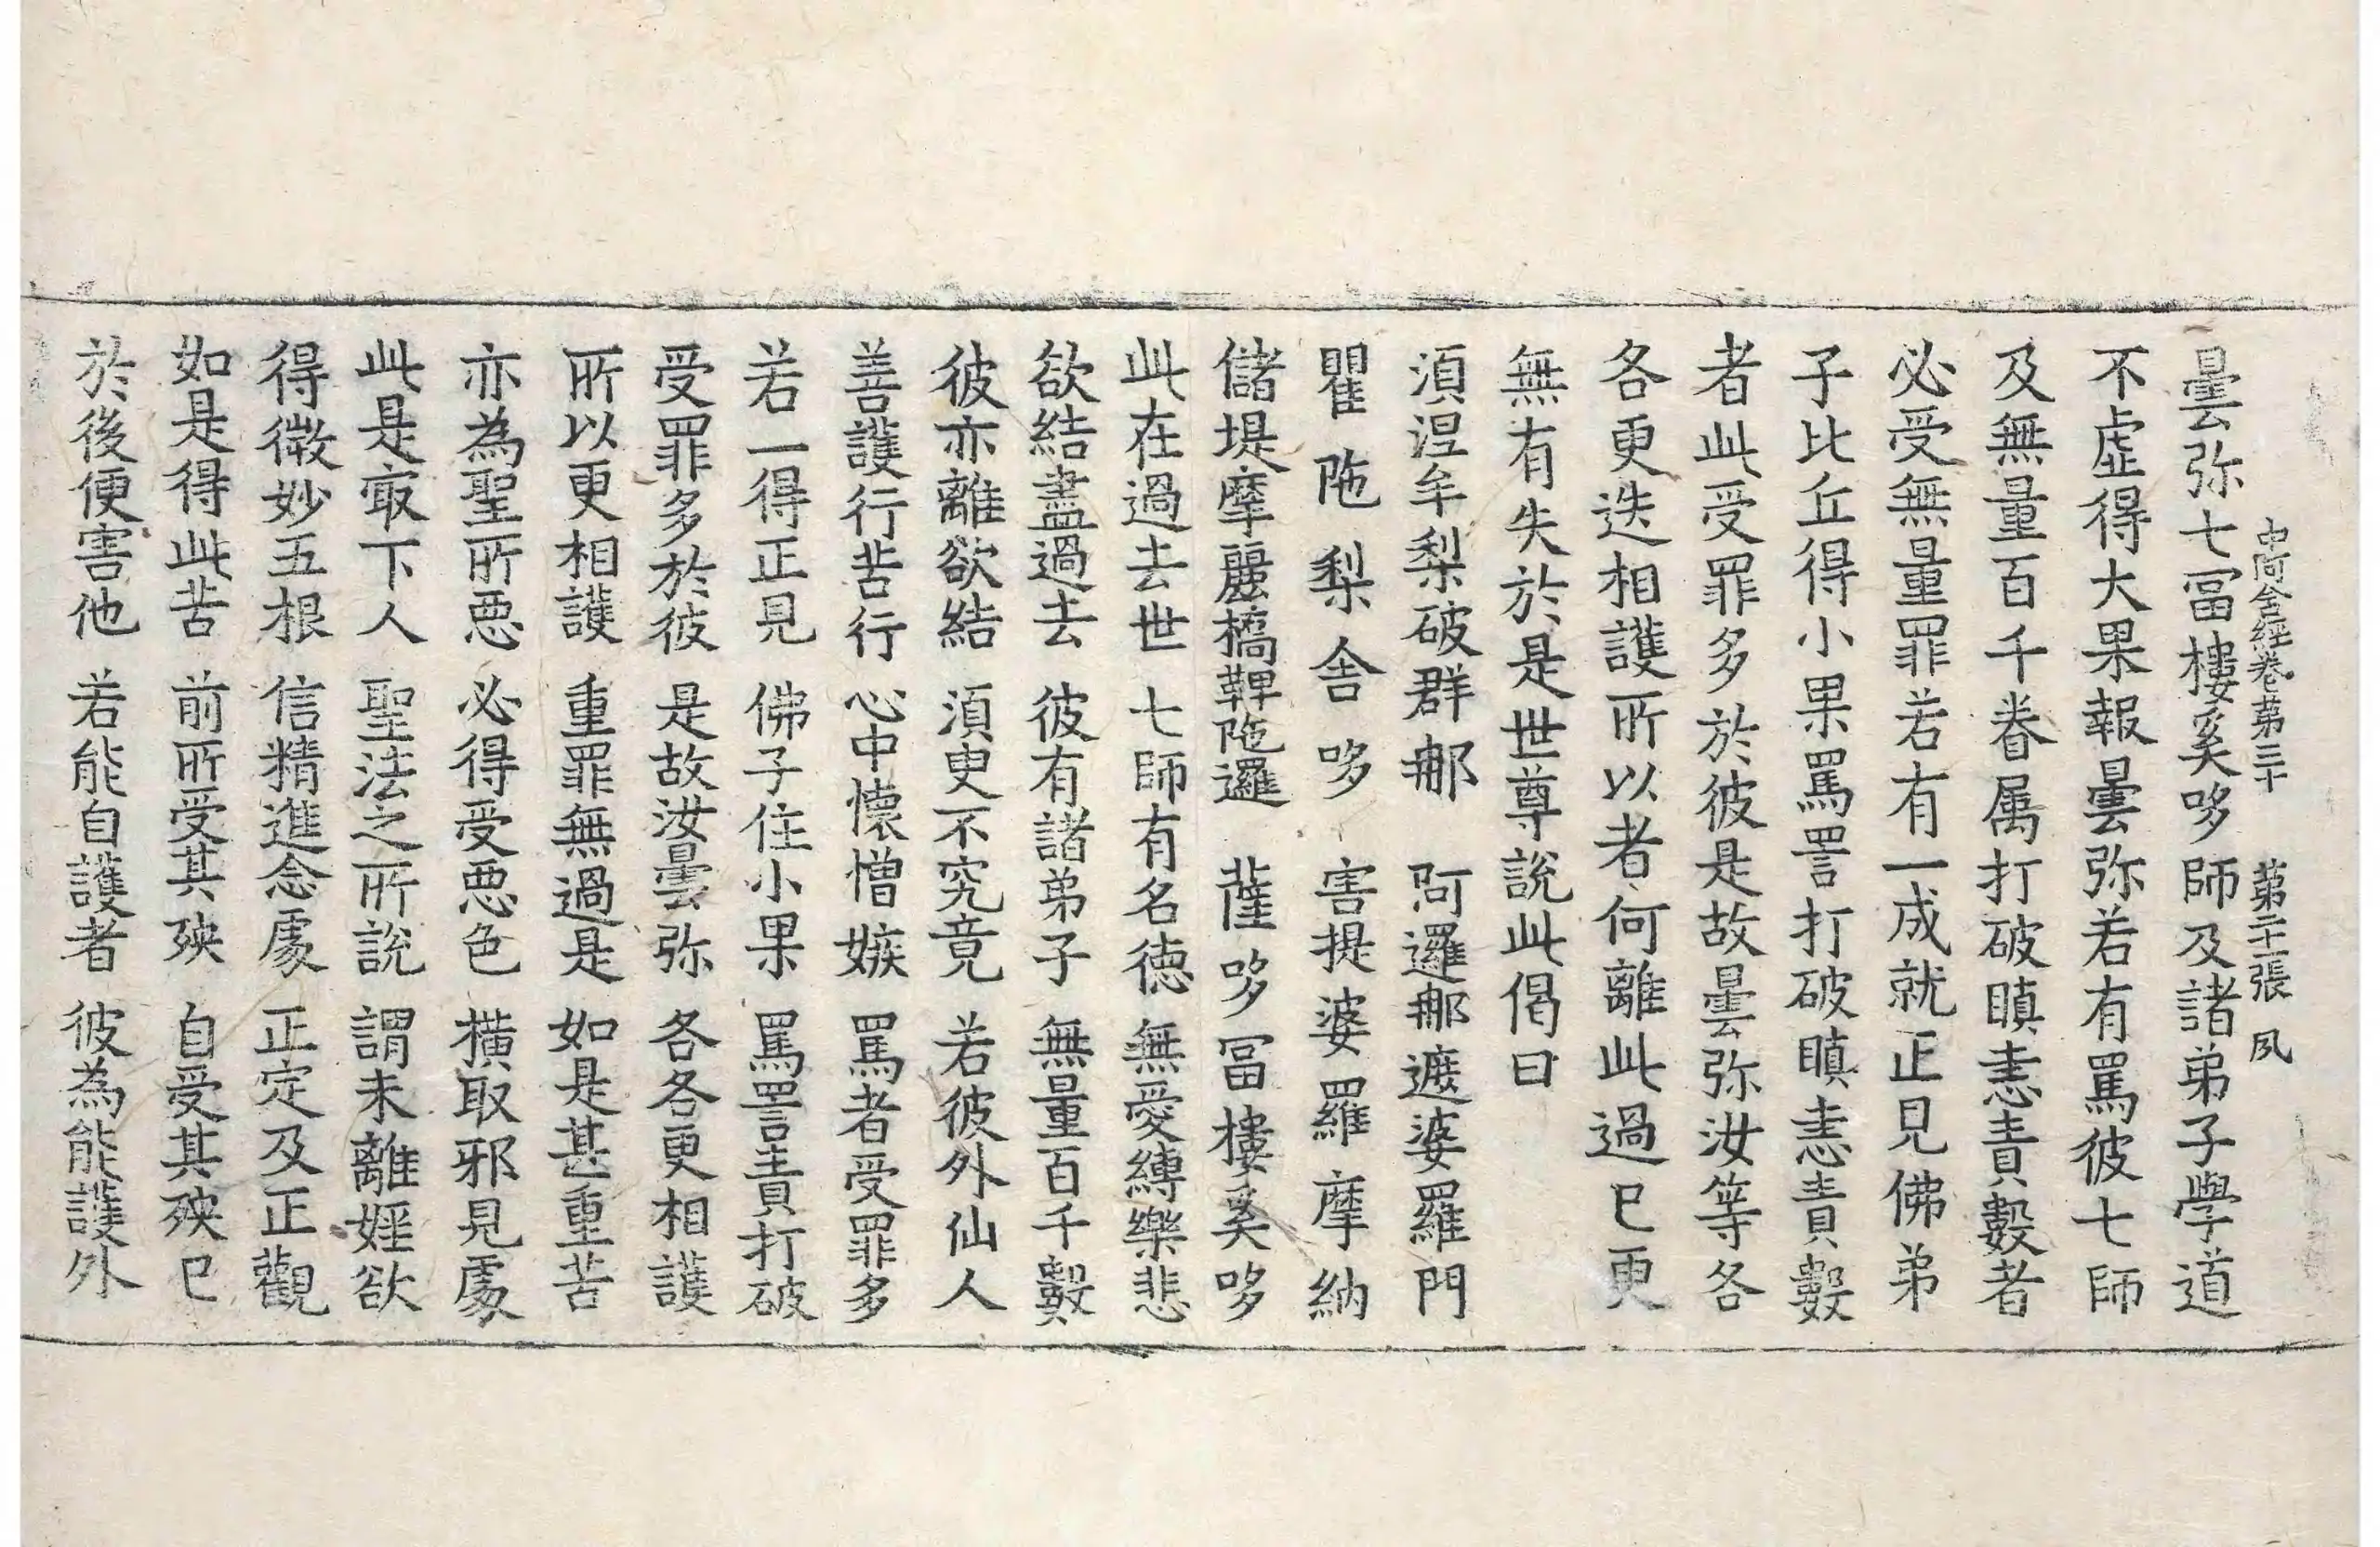 中阿含經卷第三十 第二十二張 夙
曇弥七冨樓奚哆師及諸弟子學道
不虛得大果報曇弥若有罵彼七師
及無量百千眷属打破瞋恚責數者
必受無量罪若有一成就正見佛弟
子比丘得小果罵詈打破瞋恚責數
者此受罪多於彼是故曇弥汝等各
各更迭相護所以者何離此過已更
無有失於是世尊說此偈曰
湏涅牟梨破群那 阿邏那遮婆羅門
瞿陁梨舍哆 害提婆羅摩納
儲堤摩麗橋鞞陁邏 薩哆冨樓奚哆
此在過去世 七師有名德 無愛縛樂悲
欲結盡過去 彼有諸弟子 無量百千數
彼亦離欲結 湏臾不究竟 若彼外仙人
善護行苦行 心中懷憎嫉 罵者受罪多
若一得正見 佛子住小果 罵詈責打破
受罪多於彼 是故汝曇弥 各各更相護
所以更相護 重罪無過是 如是甚重苦
亦為聖所惡 必得受惡色 橫取邪見處
此是㝡下人 聖法之所說 謂未離婬欲
得微妙五根 信精進念處 正定及正觀
如是得此苦 前所受其殃 自受其殃已
於後便害他 若能自護者 彼為能護外